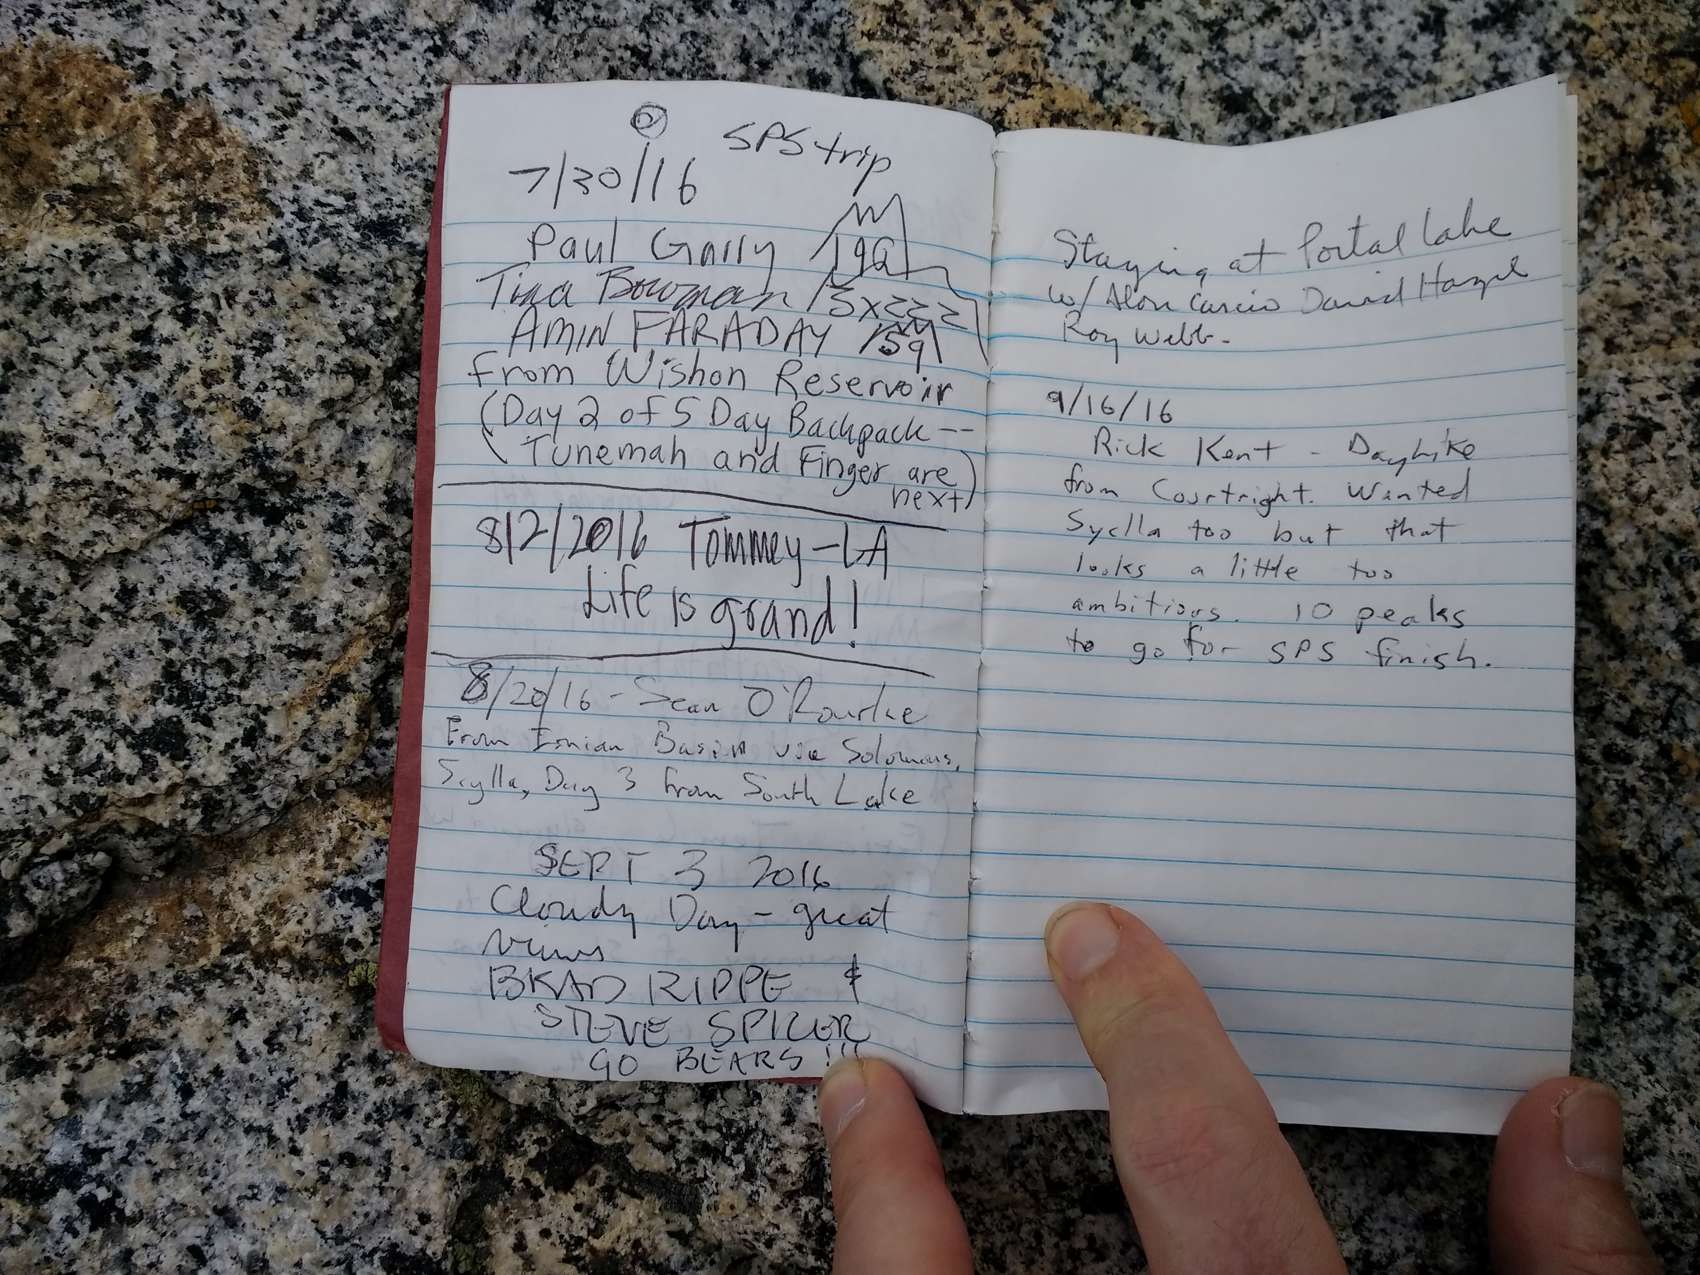 SPS trip
7/30/16
Paul Garry 196
Tina Bowman 5x222
AMIN FARADAY 159
From Wishon Reservoir
(Day 2 of 5 Day Backpack --
Tunemah and Finger are
next)
8/2/2016 Tommey - LA
Life is grand!
8/20/16 - Sean O'Rourke
From Ionian Basin via Solomons,
Scylla, Day 3 from South Lake
SEPT 3 2016
Cloudy Day - great
views
BRAD RIPPE &
STEVE SPICER
GO BEARS !!!
Staying at Portal Lake
w/ David
Roy Webb.
9/16/16
Rick Kent - Dayhike
from Courtright. Wanted
Sylla too but that
looks a little too
ambitious. 10 peaks
to go for SPS finish.